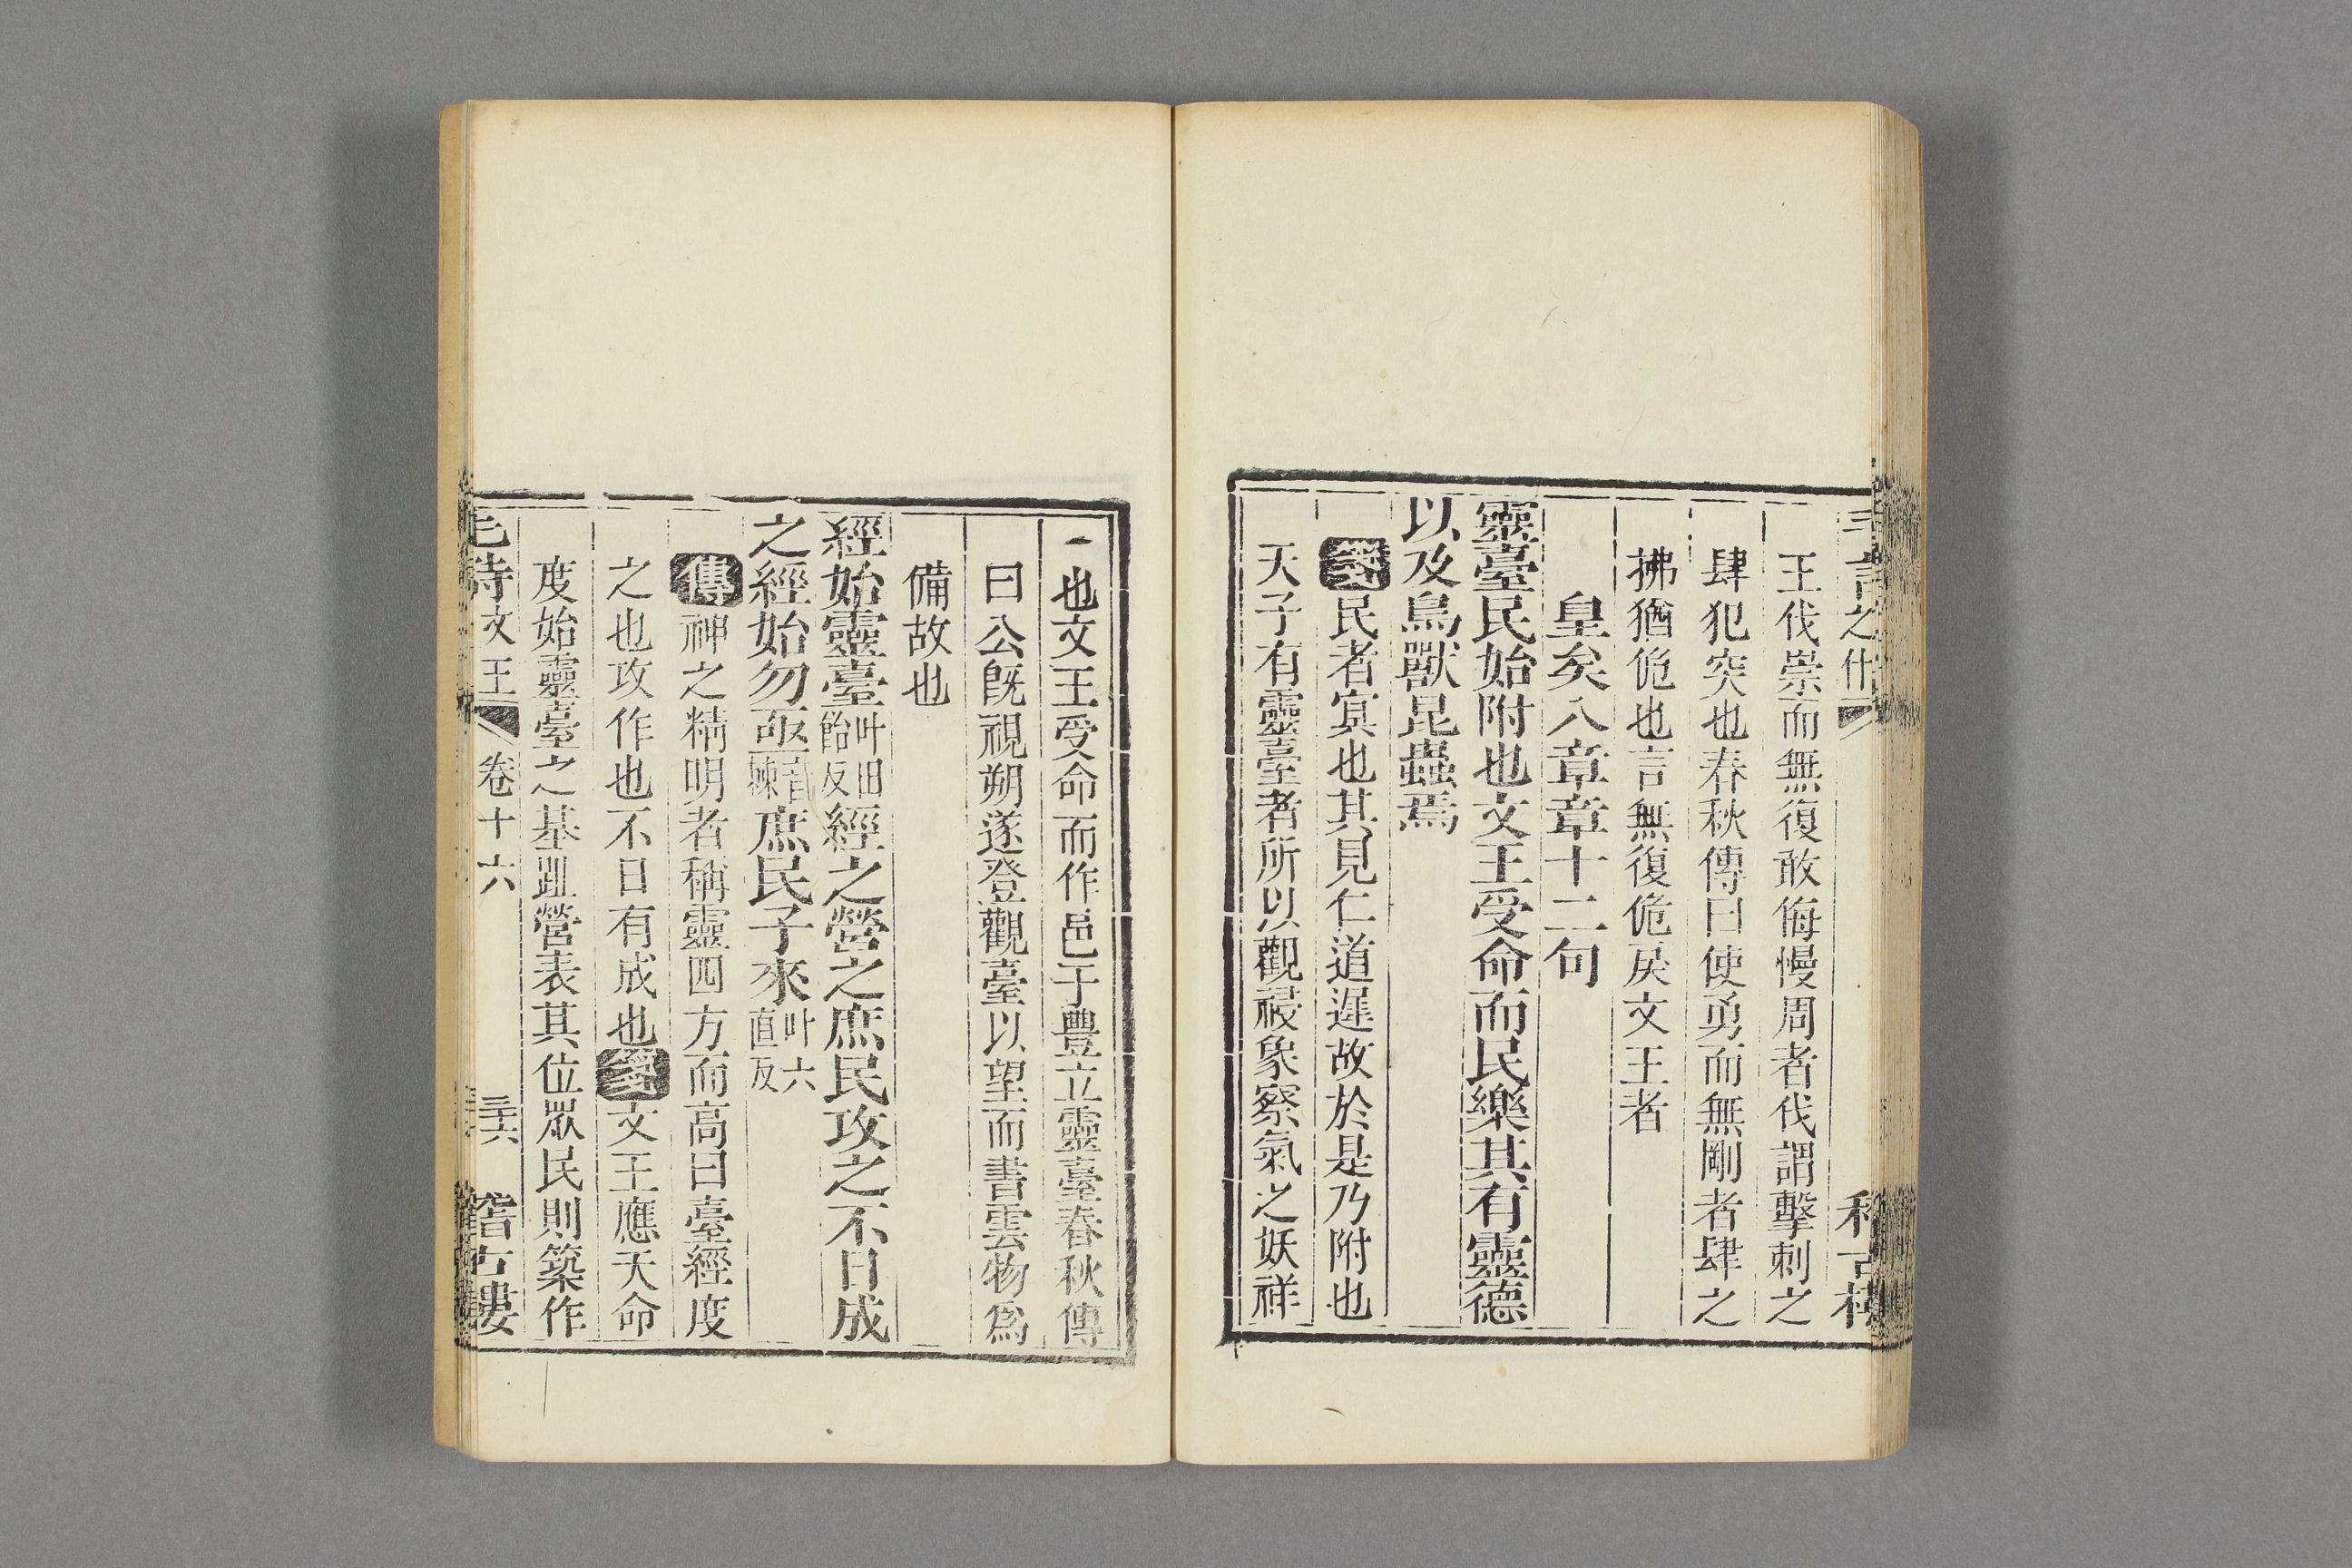 王伐崇而無復敢侮慢周者伐謂擊刺之
肆犯突也春秋傳曰使勇而無剛者肆之
拂猶佹也言無復佹戾文王者
皇矣八章章十二句
靈臺民始附也文王受命而民樂其有靈德
以及鳥獸昆蟲焉
箋民者冥也其見仁道遲故於是乃附也
天子有靈臺者所以觀祲象察氣之妖祥
也文王受命而作邑于豊立靈臺春秋傳
曰公旣視朔遂登觀臺以望而書雲物爲
備故也
經始靈臺叶田飴反經之營之庶民攻之不日成
之經始勿亟音棘庶民子來叶六直反
傳神之精明者稱靈四方而高曰臺經度
之也攻作也不日有成也箋文王應天命
度始靈臺之基趾營表其位眾民則築作
毛詩文王 卷十六 三十六 稽古樓